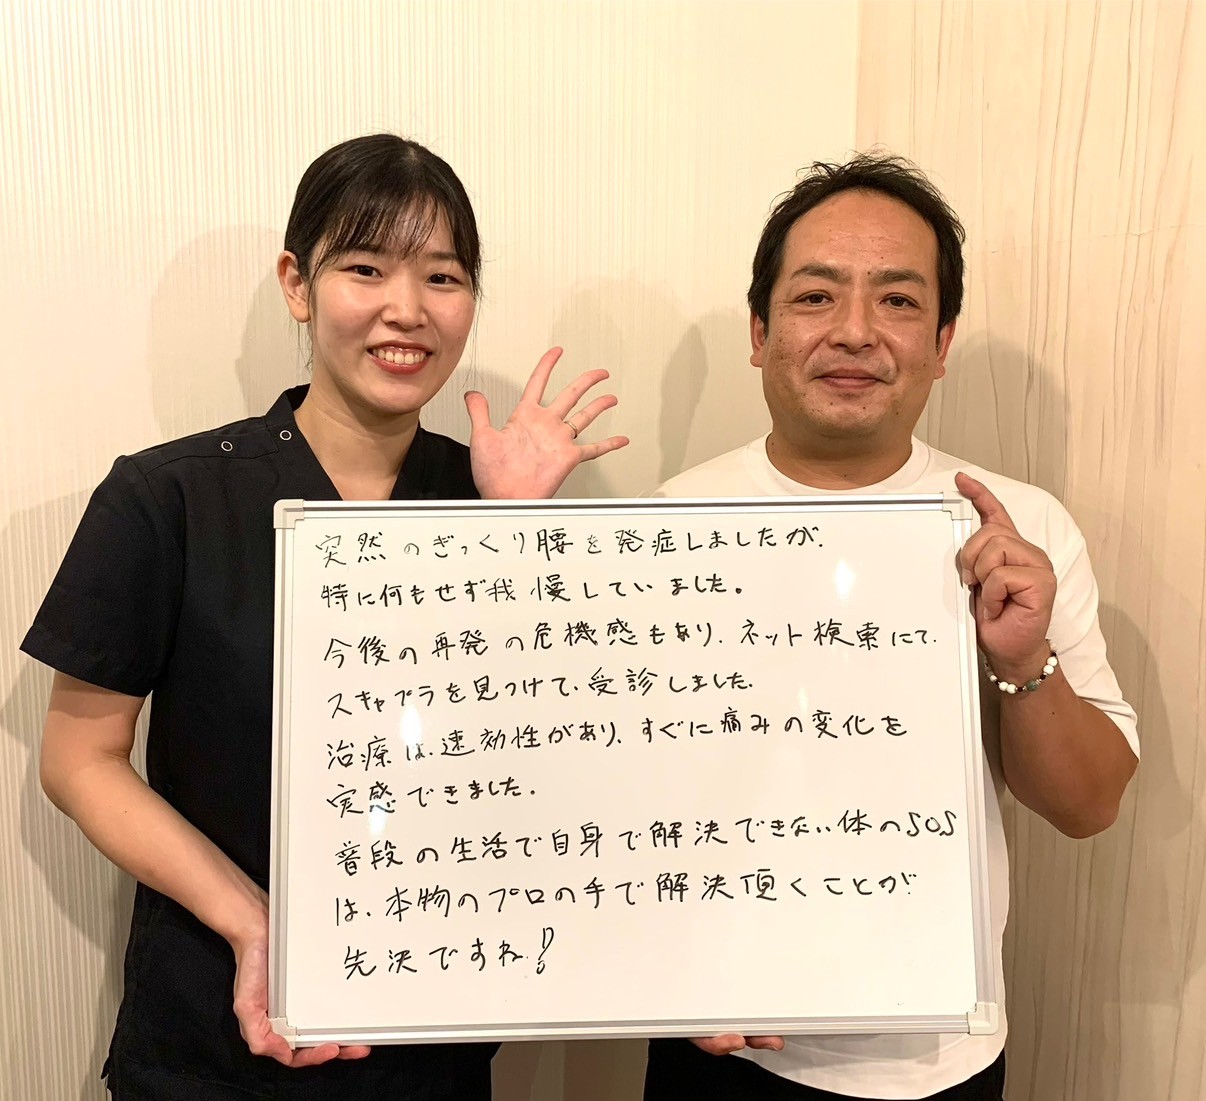 突然のぎっくり腰を発症しましたが、
特に何もせず我慢していました。
今後の再発の危機感もあり、ネット検索にて、
スキャプラを見つけて、受診しました。
治療は、速効性があり、すぐに痛みの変化を
実感できました。
普段の生活で自身で解決できない体のSOS
は、本物のプロの手で解決頂くことが
先決ですね!